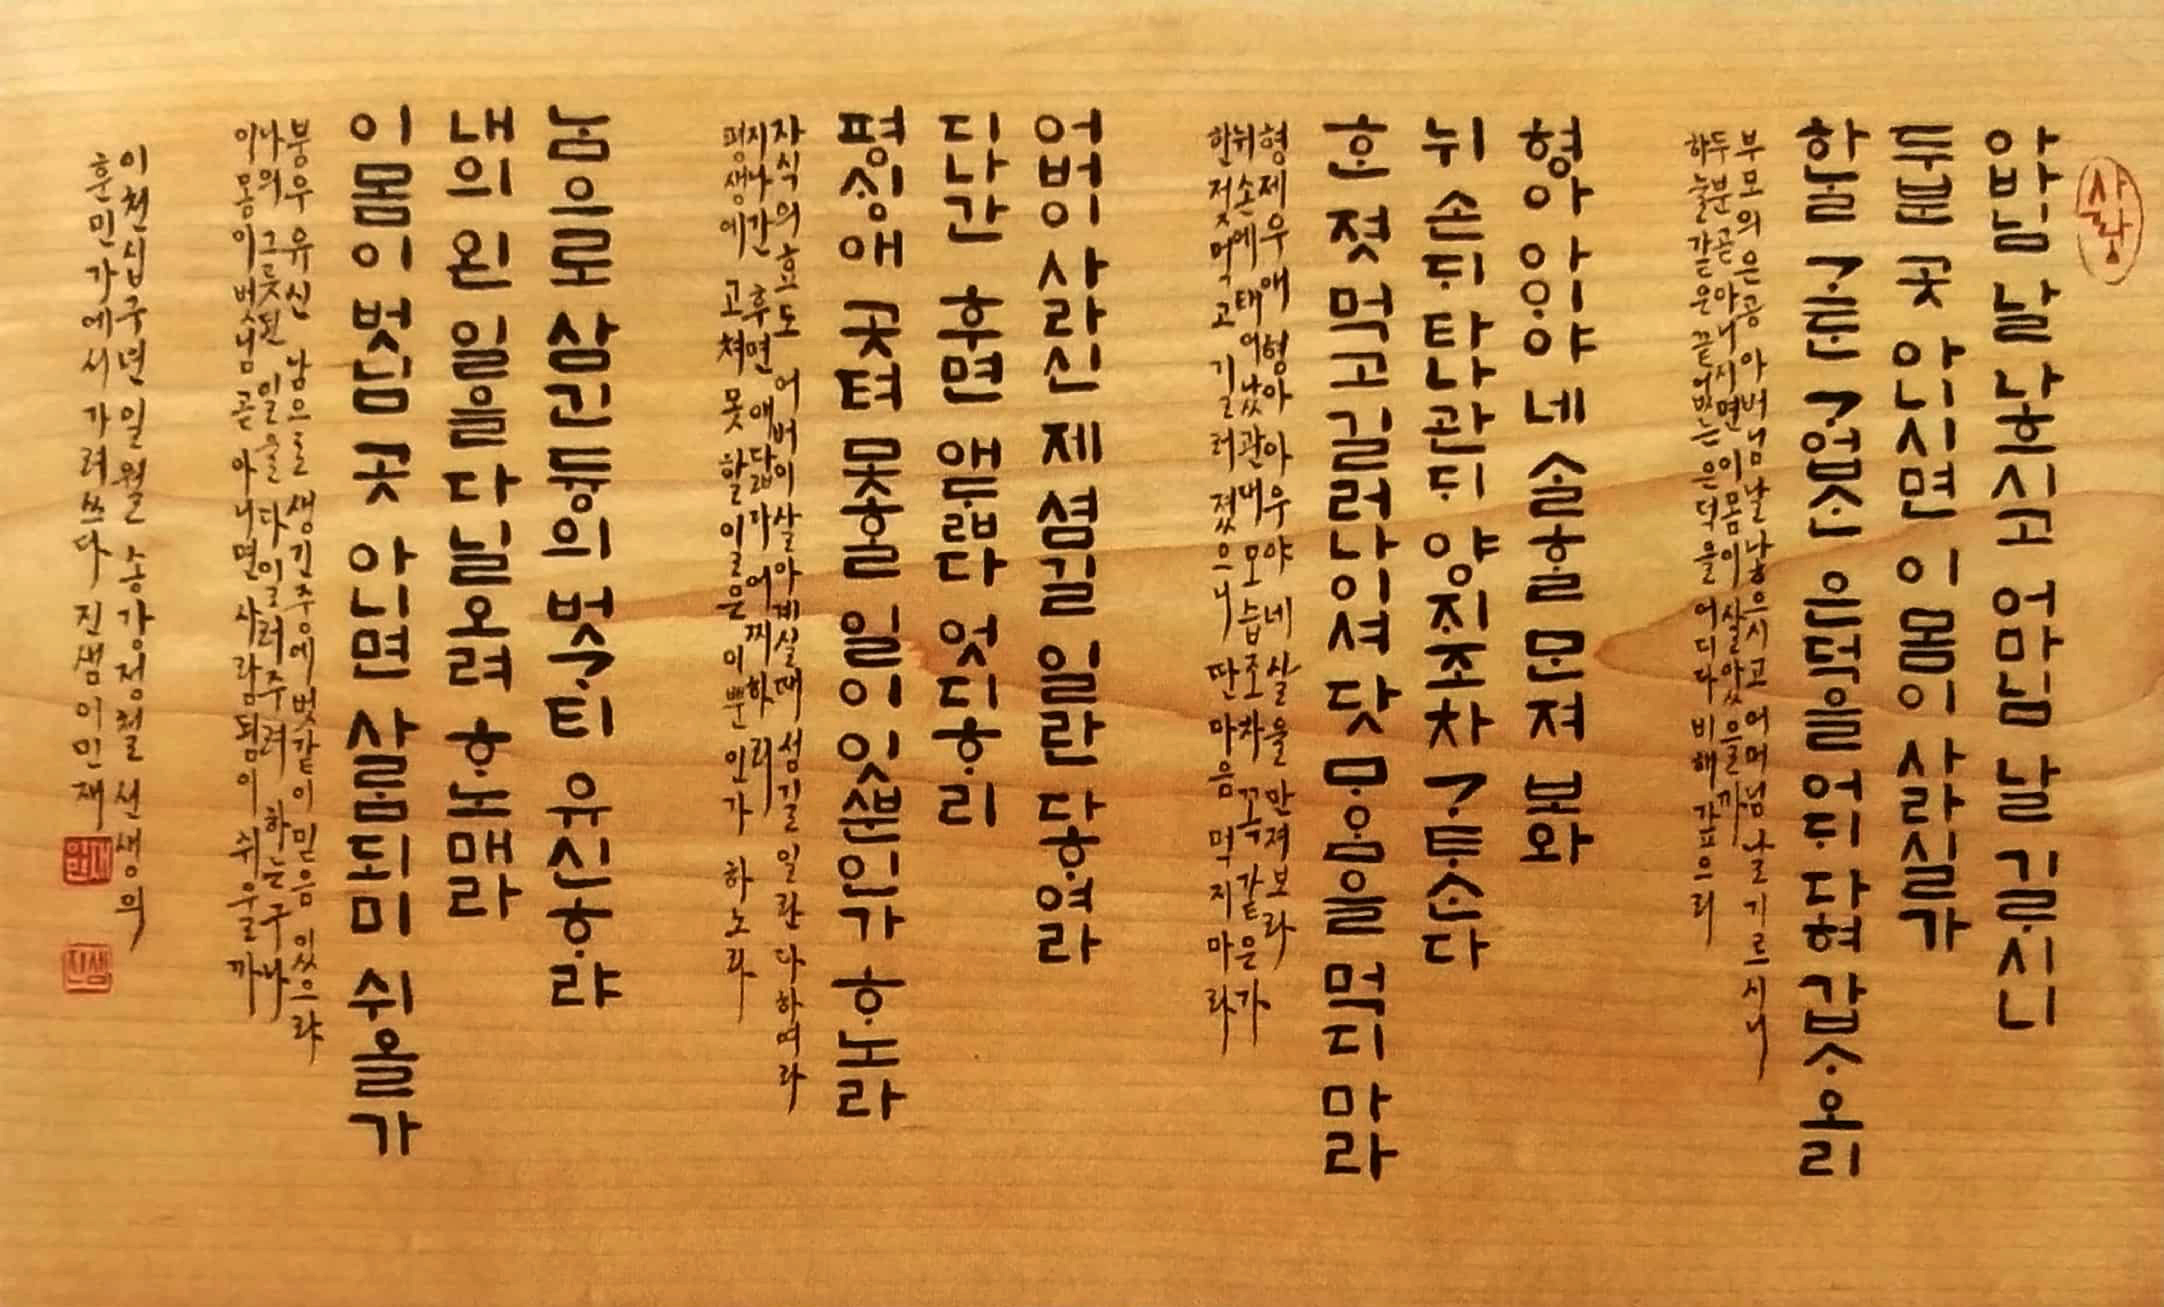 사랑
아바님 날 나ᄒᆞ시고 어마님 날 기ᄅᆞ시니
두분 곳 아니시면 이 몸이 사라실가
하ᄂᆞᆯ ᄀᆞᄐᆞᆫ ᄀᆞ업ᄉᆞᆫ 은덕을 어ᄃᆡ 다혀 갑ᄉᆞ오리
부모의 은공 아버님 날 낳으시고 어머님 날 기르시니
두분 곧 아니시면 이 몸이 살았으리까
하늘같은 끝없는 은덕을 어디다 비해 갚으리
형아 아ᄋᆞ야 네 ᄉᆞᆯᄒᆞᆯ ᄆᆞᆫ져 보와
뉘 손ᄃᆡ 타 나관ᄃᆡ 양ᄌᆡ조차 ᄀᆞᄐᆞᄉᆞᆫ다
ᄒᆞᆫ 졋 먹고 길러나 이셔 닷 ᄆᆞᄋᆞᆷ을 먹디 마라
형제우애 형아 아우야 네 살을 만져보라
뉘 손에 태어났관대 모습조차 꼭 같은가
한 젖 먹고 길러졌으니 딴 마음 먹지 마라
어버이 사라신 제 셤길 일란 다ᄒᆞ여라
디나간 후면 애ᄃᆞᆲ다 엇디ᄒᆞ리
평ᄉᆡᆼ애 곳텨 못ᄒᆞᆯ 일이 잇ᄲᅮᆫ인가 ᄒᆞ노라
자식의 효도 어버이 살아계실때 섬길 일란 다하여라
지나간 후면 애닯다 어찌하리
평생에 고쳐 못 할 이일은 이뿐인가 하노라
ᄂᆞᆷ으로 삼긴 듕의 벗ᄀᆞ티 유신ᄒᆞ랴
내의 왼 일을 다 닐오려 ᄒᆞ노매라
이 몸이 벗님 곳 아니면 사ᄅᆞᆷ되미 쉬울가
붕우유신 남으로 생긴 중에 벗같이 믿음 있으랴
나의 그릇된 일을 다 일러주려 하는구나
이 몸이 벗님 곧 아니면 사람됨이 쉬울까
이천십구년 일월 송강정철 선생의
훈민가에서 가려쓰다 진샘이민재